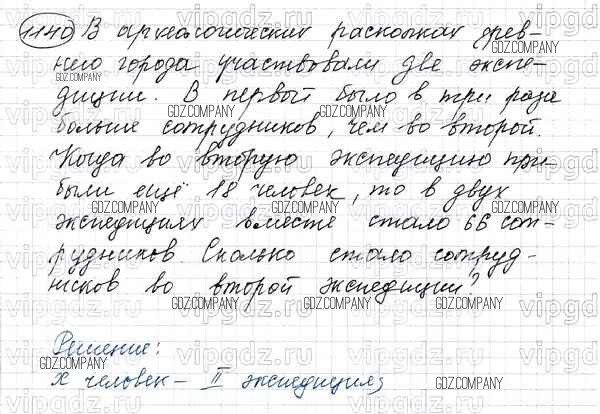 1140 В археологических раскопках древ-
него города участвовали две экспе-
диции. В первой было в три раза
больше сотрудников, чем во второй.
Когда во вторую экспедицию при-
были ещё 18 человек, то в двух
экспедициях вместе стало 66 сот-
рудников. Сколько стало сотруд-
ников во второй экспедиции?
Решение:
х человек – II экспедиция;